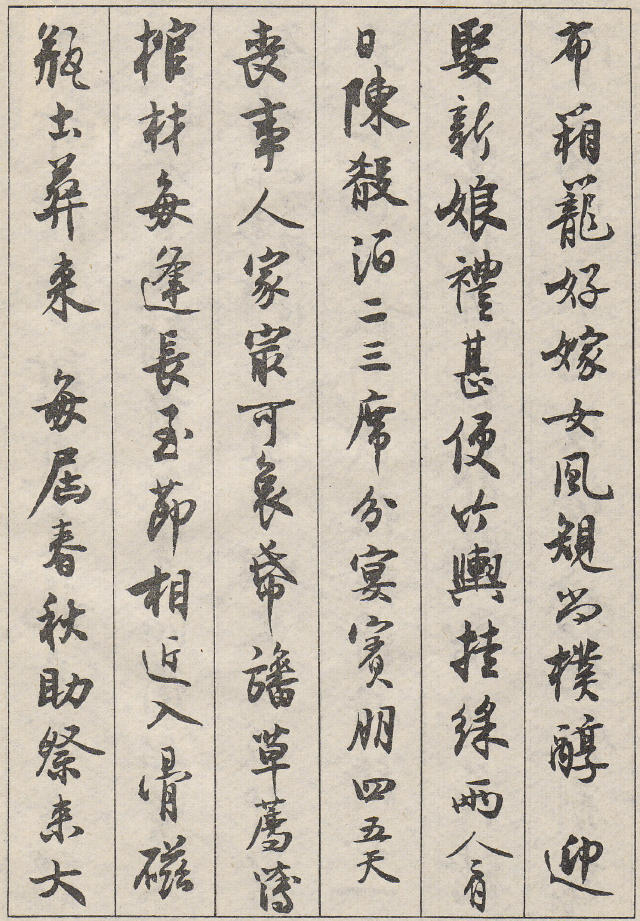 布箱籠好嫁女風規尚樸醇　迎
娶新娘禮甚便竹輿挂綵兩人肩
日陳殽泊二三席分宴賓朋四五天
喪事人家最可哀草薦
棺材每逢長至節相近入骨磁
瓶出葬來　每屆春秋助祭來大